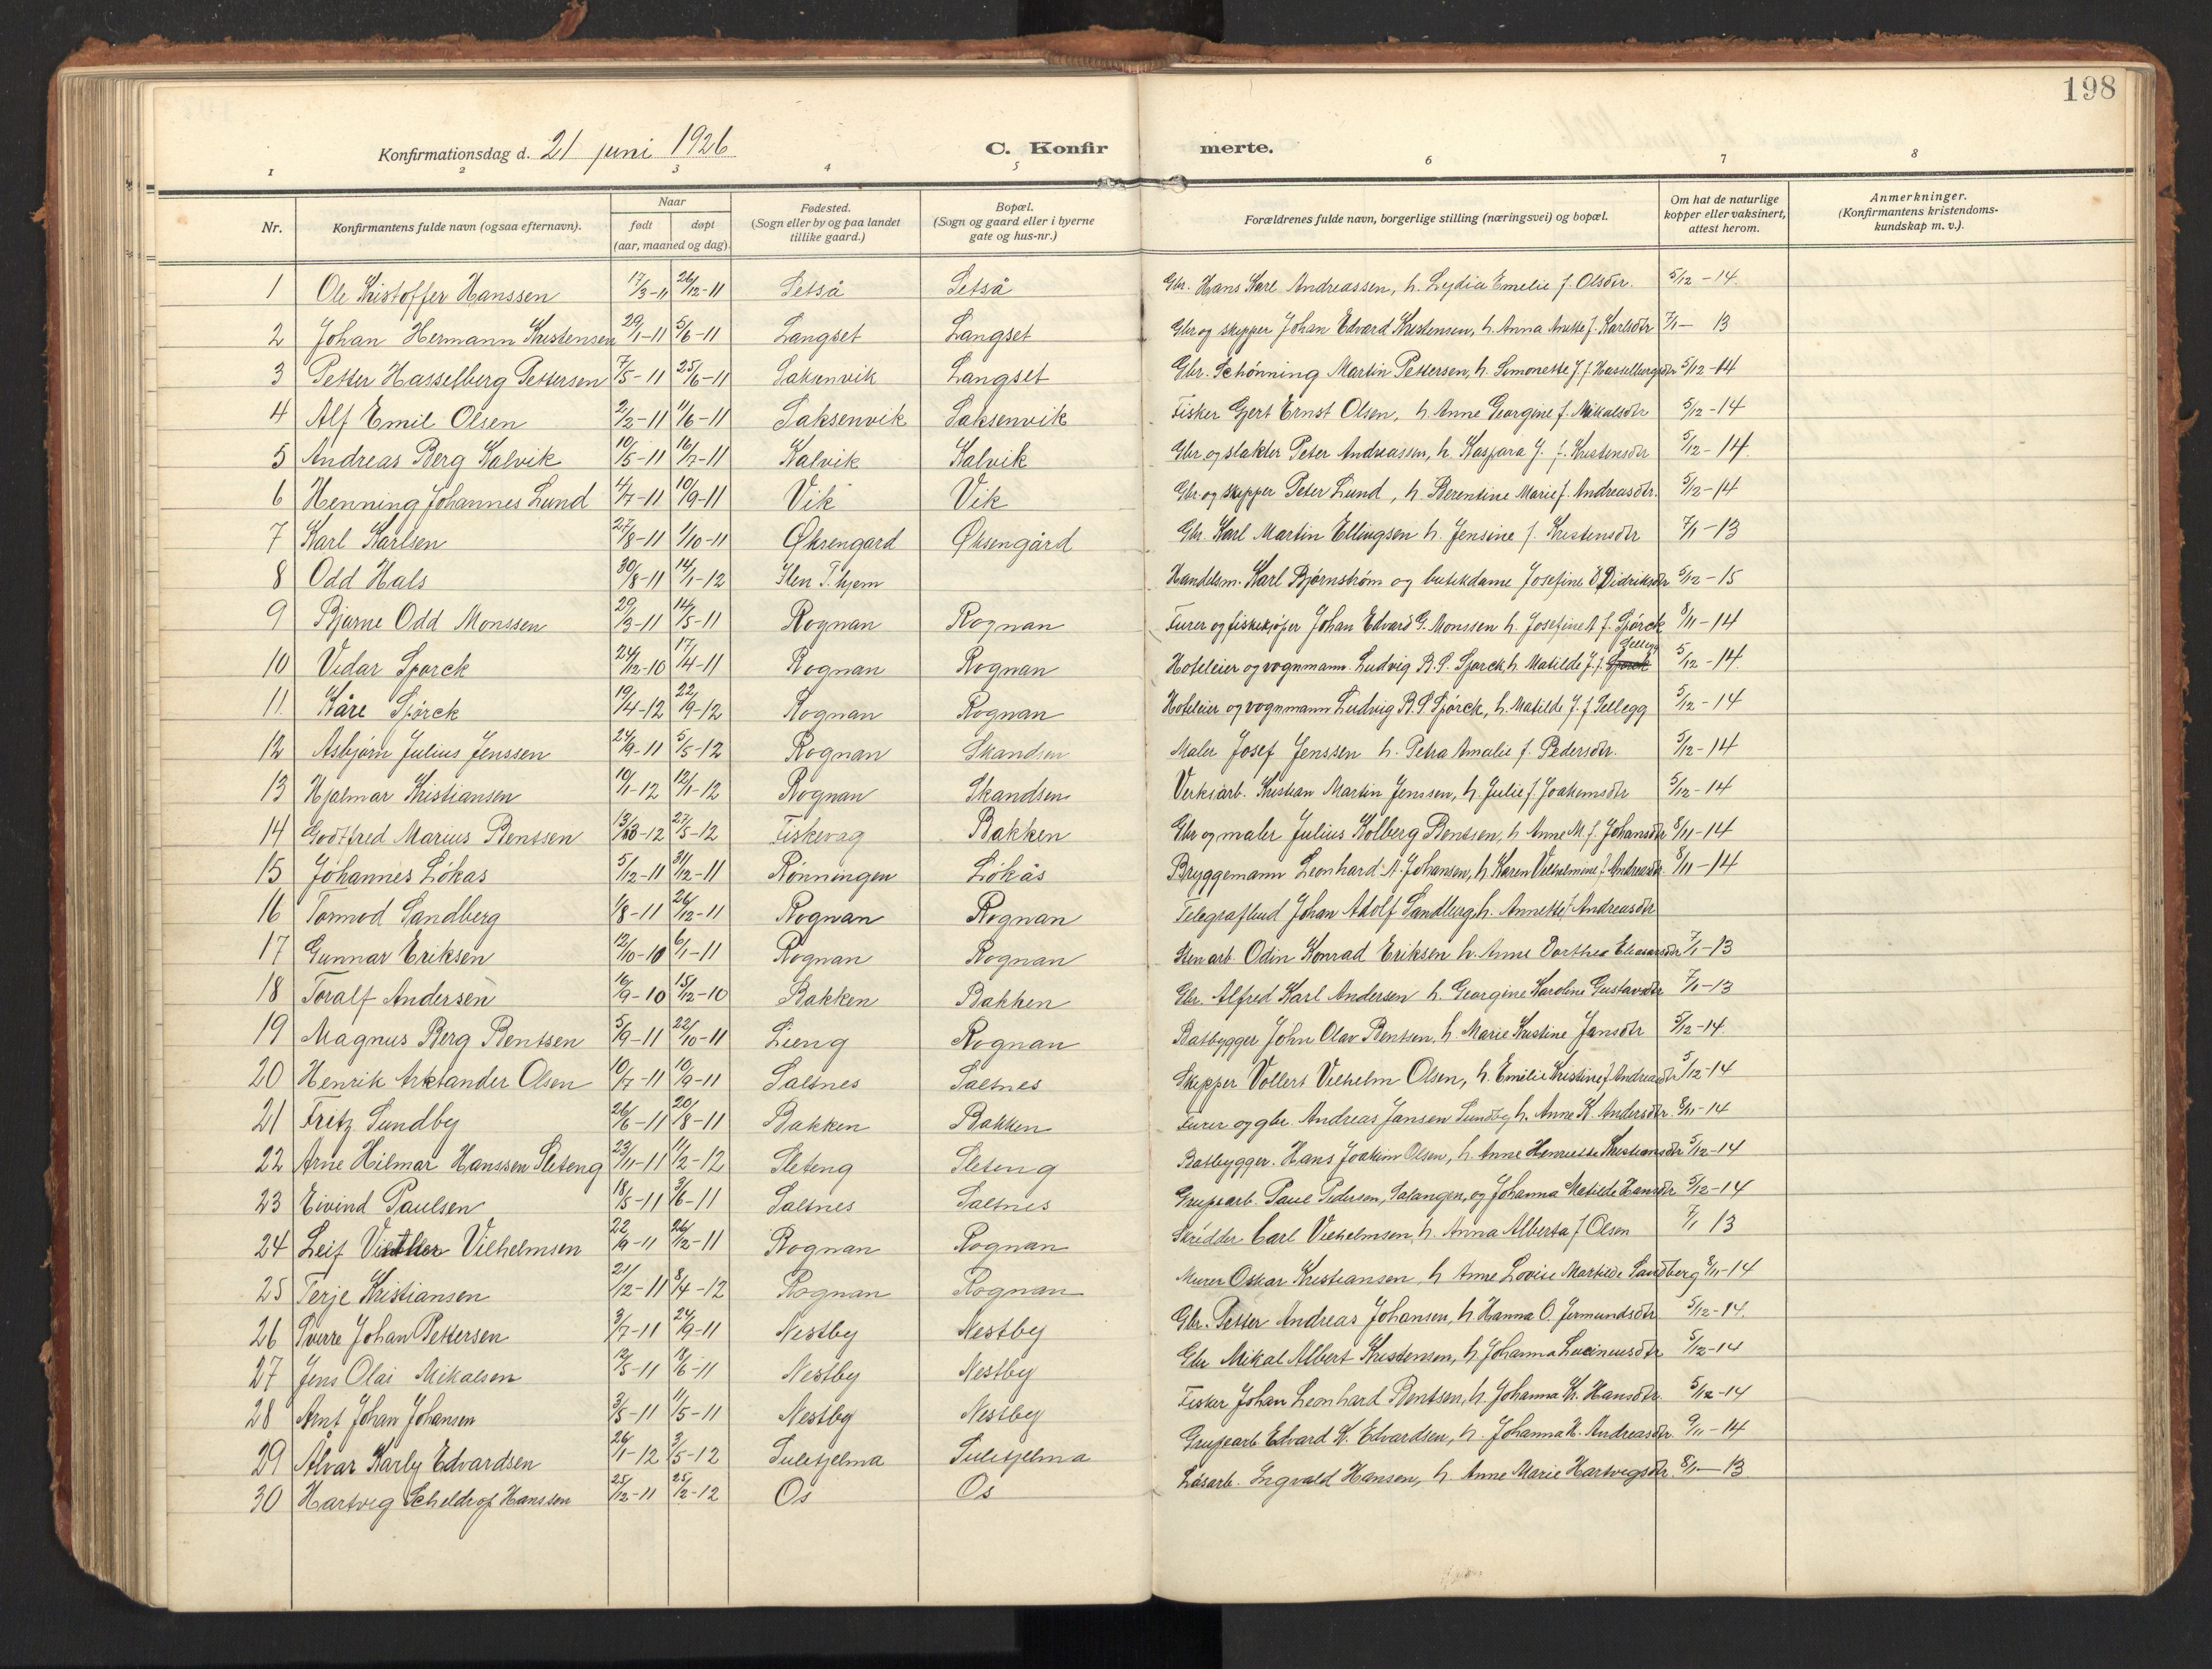 198
Konfirmationsdag d. 21 juni 1926
C. Konfirmerte.
1 2 3 4 5 6 7 8
Nr. Konfirmantens fulde navn (ogsaa efternavn). Naar født døpt (aar, maaned og dag). Fødested. (Sogn eller by og paa landet tillike gaard.) Bopæl. (Sogn og gaard eller i byerne gate og hus-nr.) Forældrenes fulde navn, borgerlige stilling (næringsvei) og bopæl. Om hat de naturlige kopper eller vaksinert, attest herom. Anmerkninger. (Konfirmantens kristendomskundskap m. v.).
1 Ole Kristoffer Hanssen 17/3-11 26/12-11 Setså Setså Gbr. Hans Karl Andreassen, h. Lydia Emelie f. Olsdtr. 5/12-14.
2 Johan Hermann Kristensen 29/1-11 5/6-11 Langset Langset Gbr og skipper Johan Edvard Kristensen, h. Anna Anette f. Karlsdtr 7/1-13
3 Petter Hasselberg Pettersen 7/5-11 25/6-11 Saksenvik Langset Gbr. Schønning Martin Pettersen, h. Simonette J. f. Hasselbergsdtr 5/12-14
4 Alf Emil Olsen 2/2-11 11/6-11 Saksenvik Saksenvik Fisker Gert Ernst Olsen, h. Anne Georgine f. Mikalsdtr 5/12-14
5 Andreas Berg Kalvik 10/5-11 16/7-11 Kalvik Kalvik Gbr og slakter Peter Andreassen, h. Kaspara J. f. Kristensdtr 5/12-14.
6 Henning Johannes Lund 4/7-11 10/9-11 Vik Vik Gbr. og skipper Peter Lund, h. Berentine Marie f. Andreasdtr. 5/12-14
7 Karl Karlsen 27/8-11 1/10-11 Øksengard Øksengård Gbr. Karl Martin Ellingsen h. Jensine f. Kristensdtr 7/1-13
8 Odd Hals 30/8-11 14/1-12 Ilen T.hjem Handelsm. Karl Bjørnstrøm og butikdame Josefine Didriksdtr 5/12-15
9 Bjarne Odd Monssen 29/3-11 14/5-11 Rognan Rognan Furer og fiskekjøper Johan Edvard G. Monssen h. Josefine A f. Spørck 8/11-14
10 Vidar Spørck 24/12-10 17/4-11 Rognan Rognan Hoteleier og vognmann Ludvig R. S. Spørck h. Matilde J. f. Spørck Sellegg 5/12-14.
11. Kåre Spørck 19/4-12 22/9-12 Rognan Rognan Hoteleier og vognmann Ludvig R. S Spørck, h. Matilde J. f Sellegg 5/12-14
12 Asbjørn Julius Jenssen 24/9-11 5/5-12 Rognan Skandsen Maler Josef Jenssen h. Petra Amalie f. Pedersdtr. 5/12-14
13 Hjalmar Kristiansen 10/1-12 12/1-12 Rognan Skandsen Verksarb. Kristian Martin Jenssen, h. Julie f. Joakemsdtr 5/12-14
14 Godtfred Marius Bentsen 13/3-12 27/5-12 Fiskevag Bakken Gbr og maler Julius Kolberg Bentsen, h Anne M. f. Johansdtr 8/11-14
15 Johannes Løkas 5/12-11 31/12-11 Rønningen Løkås Bryggemann Leonhard A. Johansen, h. Karen Vilhelmine f. Andreasdtr. 8/11-14
16 Tormod Sandberg 1/8-11 26/12-11 Rognan Rognan Telegrafbud Johan Adolf Sandberg h. Annette f. Andreasdtr
17 Gunnar Eriksen 12/10-10 6/1-11 Rognan Rognan Sten arb. Odin Konrad Eriksen h. Anne Dorthea Eliasardtr 7/1-13
18 Toralf Andersen 16/9-10 15/12-10 Bakken Bakken Gbr. Alfred Karl Andersen h. Georgine Karoline Gustavsdtr 7/1-13
19 Magnus Berg Bentsen 5/9-11 22/10-11 Lieng Rognan Batbygger John Olav Bentsen, h. Marie Kristine Jansdtr 5/12-14.
20 Henrik Arktander Olsen 10/7-11 10/9-11 Saltnes Saltnes Skipper Vollert Vilhelm Olsen, h. Emilie Kristine f Andreasdtr 5/12-14
21 Fritz Sundby 26/6-11 20/8-11 Bakken Bakken Furer og gbr. Andreas Jansen Sundby h. Anne K. Andersdtr. 8/11-14
22 Arne Hilmar Hanssen Sleteng 23/11-11 11/2-12 Sleteng Sleteng Batbygger. Hans Joakim Olsen, h. Anne Henriette Kristiansdtr 5/12-14
23 Eivind Paulsen 18/5-11 3/6-11 Saltnes Saltnes Grupearb. Paul Pedersen, Salangen, og Johanna Matilde Hansdtr 5/12-14
24 Leif Vilhelmsen 22/9-11 26/12-11 Rognan Rognan Skrædder Carl Vilhelmsen, h. Anna Alberta f Olsen 7/1 13
25 Terje Kristiansen 21/12-11 8/4-12 Rognan Rognan Murer Oskar Kristiansen, h Anne Lovise Martilde Sandberg 8/11-14
26 Sverre Johan Pettersen 3/7-11 24/9-11 Nestby Nestby Gbr. Petter Andreas Johansen, h Hanna O. Jermundsdtr 5/12-14.
27 Jens Olai Mikalsen 12/5-11 18/6-11 Nestby Nestby Gbr Mikal Albert Kristensen, h. Johanna Lucineusdtr 5/12-14
28 Arnt Johan Johansen 3/5-11 11/5-11 Nestby Nestby Fisker Johan Leonhard Bentsen, h. Johanna Kr. Hansdtr 5/12-14
29 Alvar Karly Edvardsen 26/1-12 3/5-12 Sulitjelma Sulitjelma Grupearb. Edvard K. Edvardsen, h. Johanna K. Andreasdtr. 9/11-14
30 Hartvig Scheldrop Hanssen 25/12-11 25/2-12 Os Os Løsarb. Ingvald Hansen, h Anne Marie Hartvigsdtr. 8/1-13